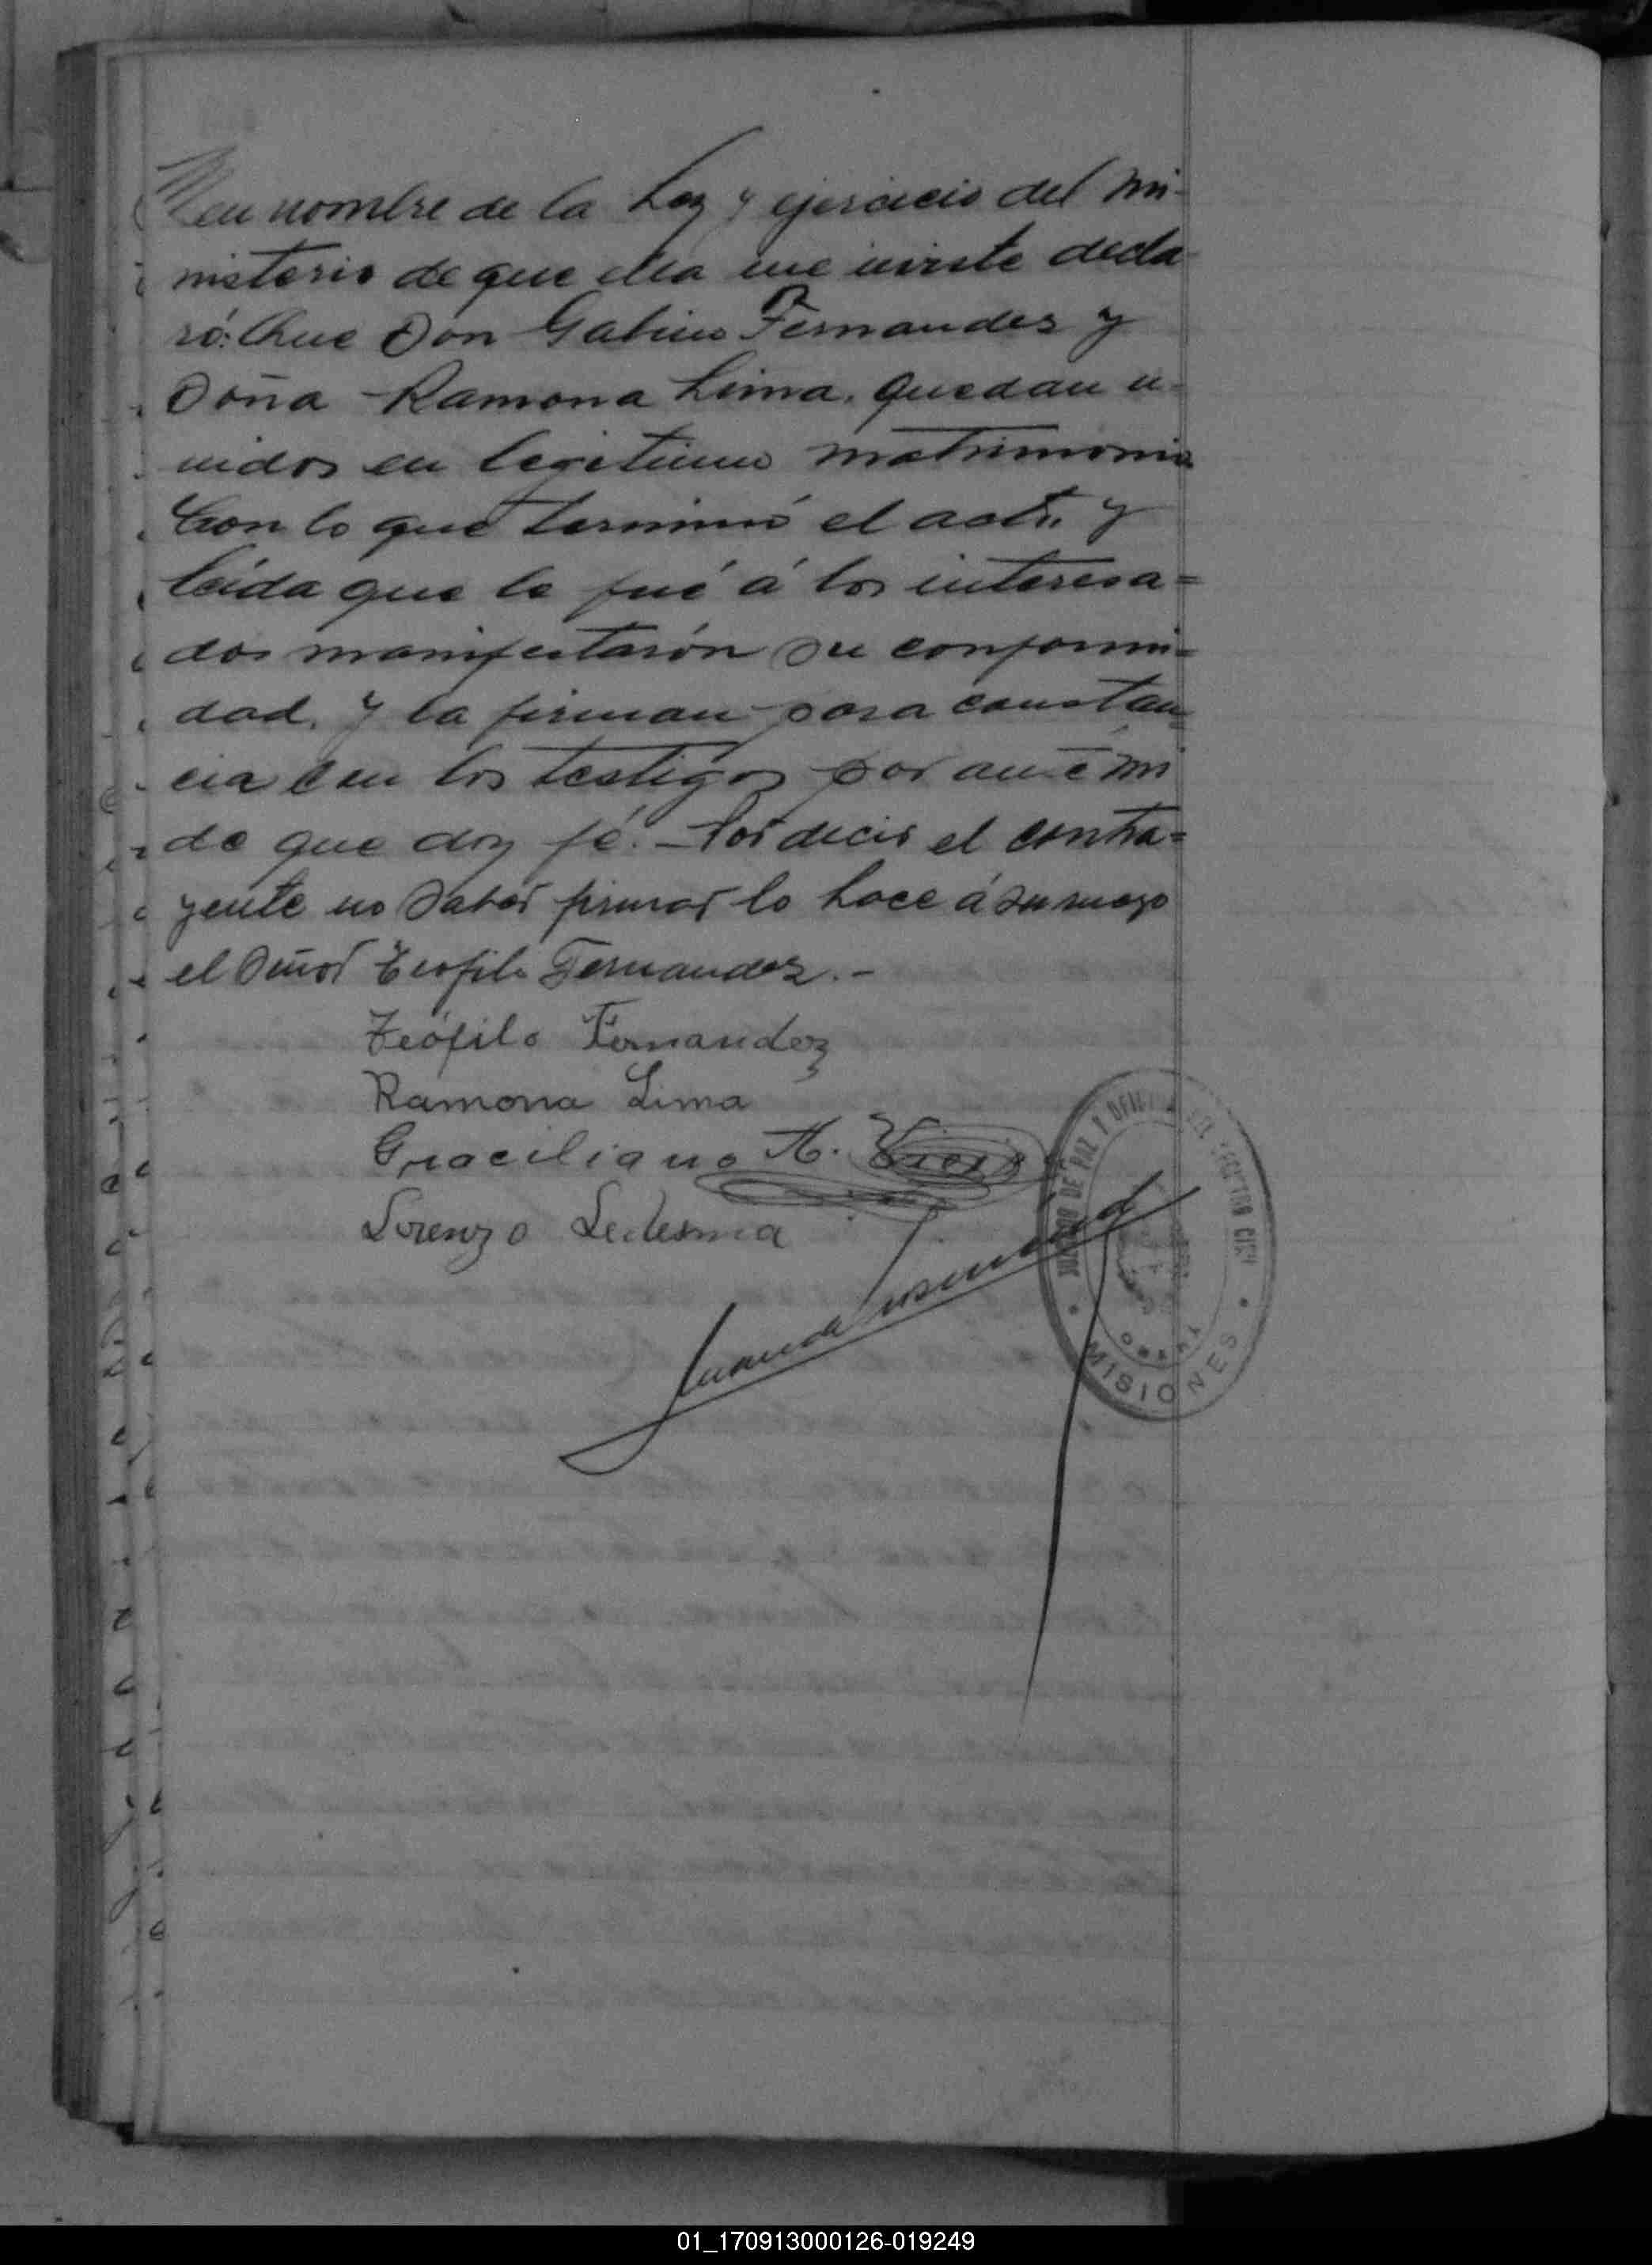 en nombre de la Ley y ejercicio del mi-
nisterio de que ella me inviste decla-
ró: Que Don Gabino Fernandes y
Doña Ramona Lima, quedan u-
nidos en legitimo matrimonio
Con lo que terminó el acto y
leida que le fué á los interesa=
dos manifestarón su conformi=
dad. y la firman para constan=
cia con los testigos por ante mi
de que doy fé. - Por decir el contra=
yente no saber firmar lo hace á su ruego
el Señor Teofilo Fernandez. -
Teófilo Fernandez
Ramona Lima
Graciliano A.
Lorenzo Ledesma
JUZGADO DE PAZ Y OFICINA DEL REGISTRO CIVIL
MISIONES
01_170913000126-019249